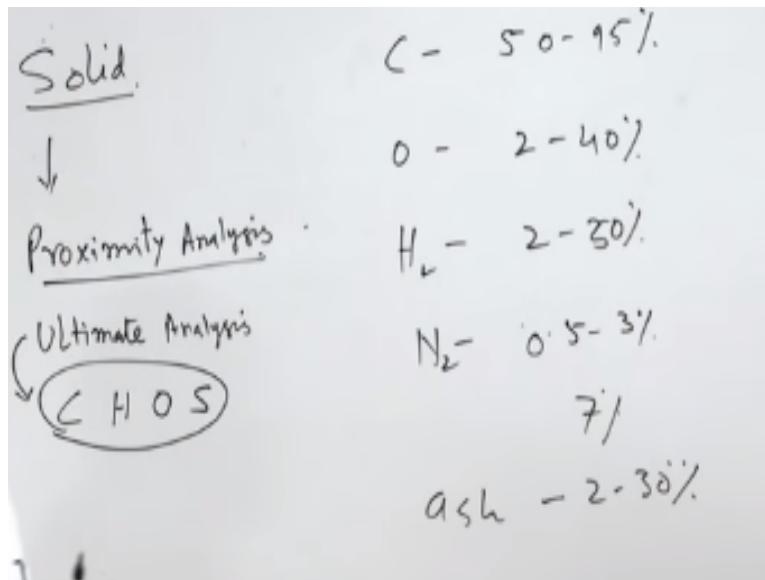 Solid.
↓
Proximity Analysis.
Ultimate Analysis
C H O S
C - 50-95%.
O - 2-40%.
H₂ - 2-50%.
N₂ - 0.5-3%.
7%
ash - 2-30%.